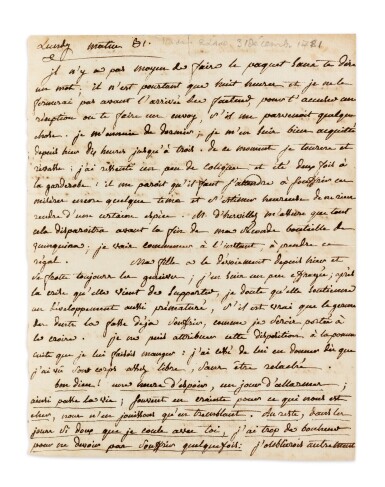 Lundy matin 31.
il n'y a pas moyen de faire le paquet sans te dire
un mot. il n'est pourtant que huit heures et je ne le
fermerai pas avant l'arrivée du facteur, pour t'accuser la
réception ou te faire un envoy, s'il me parvenoit quelque
chose. je m'ennuie de dormir, je m'en suis bien acquittée
depuis hier dix heures jusqu'à trois. de ce moment je tourne et
révasse. j'ai ressenti un peu de colique et été deux fois à
la garderobe: il me paroit qu'il faut s'attendre à souffrir en
misère encore quelque tems et s'estimer heureuse de ne rien
rendre d'une certaine espèce. M. d'hervillez m'assure que tout
cela disparoitra avant la fin de ma seconde bouteille de
quinquina; je vais commencer à l'instant, à prendre ce
régal. Ma fille a le dévoiement depuis hier et
se frotte toujours les gencives; j'en suis un peu effrayée; après
la crise qu'elle vient de supporter, je doute qu'elle soutienne
un développement aussi prématuré, s'il est vrai que la germe
des dents la fasse déjà souffrir, comme je serois portée à
le croire. je ne puis attribuer cette disposition à la pomme
cuite que je lui faisois manger; j'ai cessé de lui en donner dès que
j'ai vu son corps assez libre, sans être relâché.
bon dieu! une heure d'espoir, un jour d'allarmes;
ainsi passe la vie; souvent en crainte pour ce qui nous est
cher, nous n'en jouissons qu'en tremblant. Au reste, dans les
jours si doux que je coule avec toi, j'ai trop de bonheur
pour ne devoir pas souffrir quelquefois: j'oublierois autrement